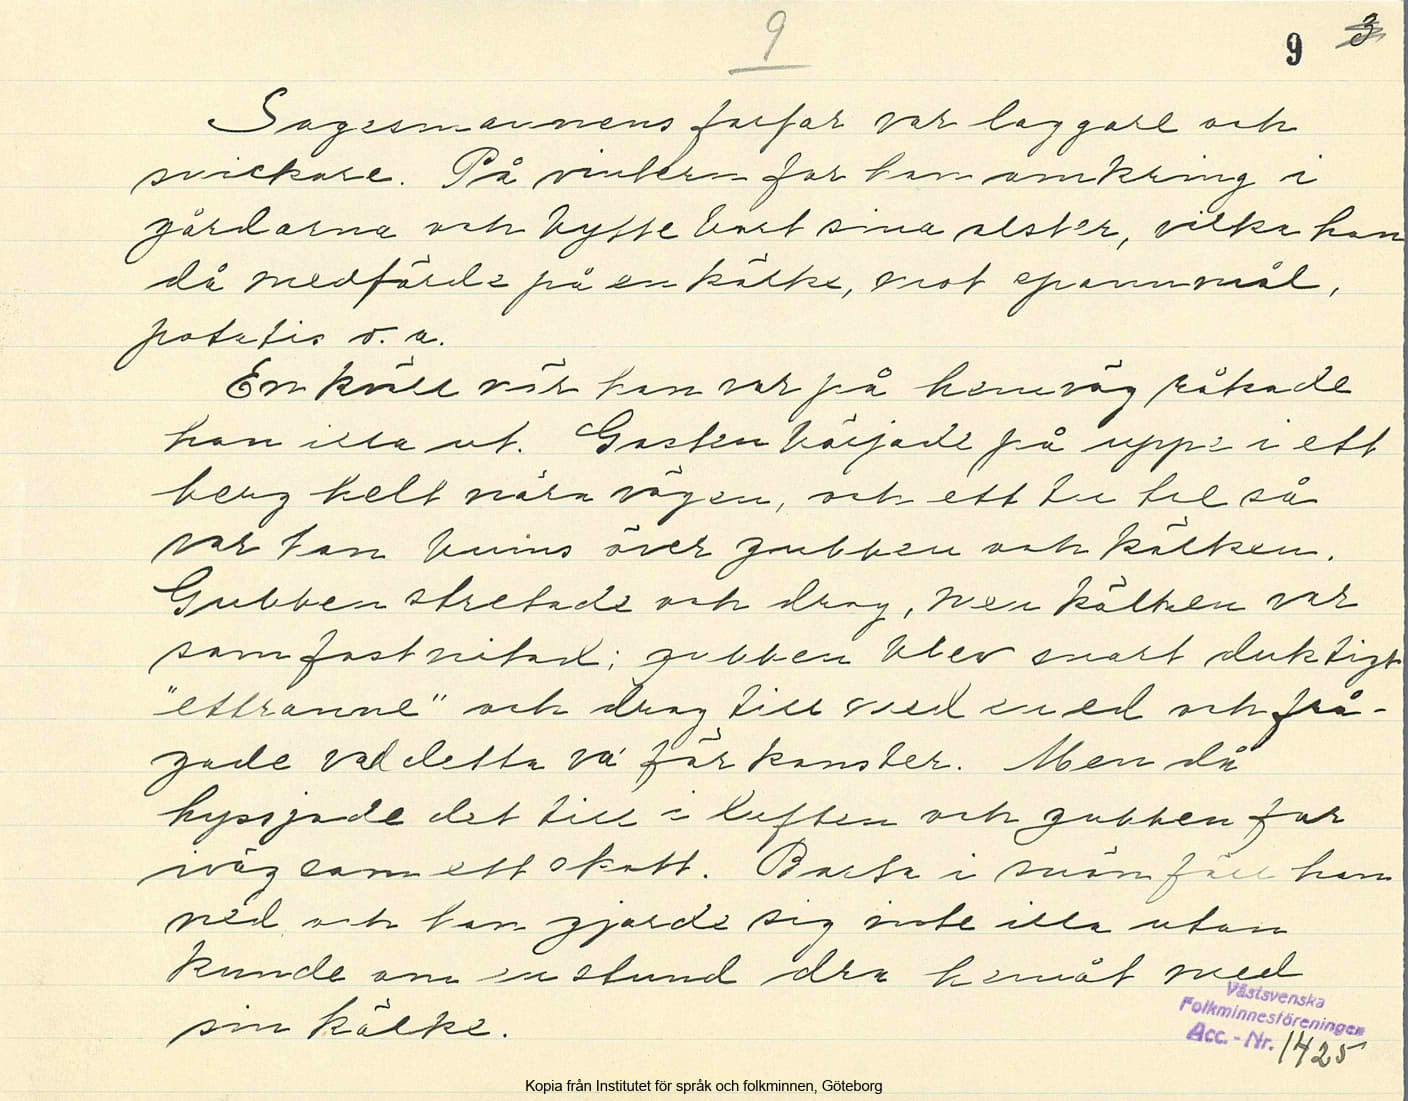 9
9 3
Sagesmannens farfar var laggare och
snickare. På vintern for han omkring i
gårdarna och bytte bort sina alster, vilka han
då medförde på en kälke, mot spannmål,
potatis o. a.
En kväll när han var på hemväg råkade
han illa ut. Gasten började på uppe i ett
berg helt nära vägen, och ett tu tre så
var han inpå över gubben och kälken.
Gubben stretade och drog, men kälken var
som fastnitad; gubben blev snart duktigt
"ettranne" och drog till med en ed och frå-
gade vad detta va' för konster. Men då
hyssjade det till i luften och gubben for
iväg som ett skott. Borta i snön föll han
ned och han gjorde sig inte illa utan
kunde om en stund dra hemåt med
sin kälke.
Västsvenska
Folkminnesföreningen
Acc. - Nr. 1425
Kopia från Institutet för språk och folkminnen, Göteborg